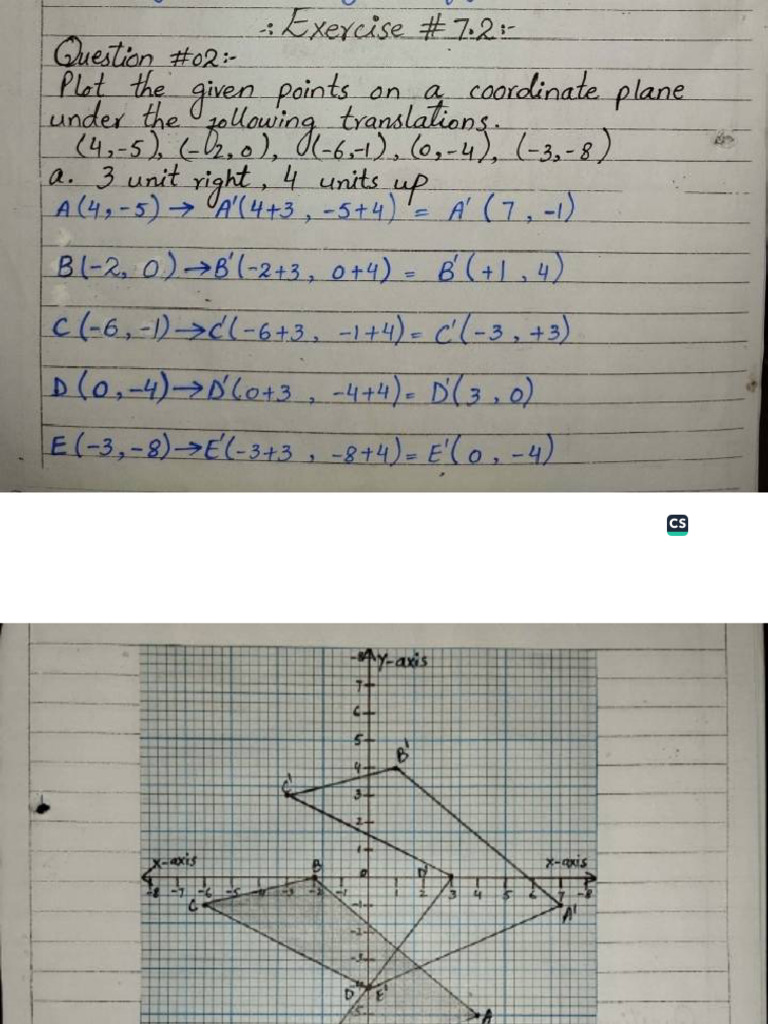 ∴ Exercise # 7.2:-
Question #02:-
Plot the given points on a coordinate plane
under the following translations.
(4,-5), (-2,0), (-6,-1), (0,-4), (-3,-8)
a. 3 unit right, 4 units up
A(4,-5) → A'(4+3, -5+4) = A'(7,-1)
B(-2, 0) → B'(-2+3, 0+4) = B'(+1, 4)
C(-6,-1) → C'(-6+3, -1+4) = C'(-3,+3)
D(0,-4) → D'(0+3, -4+4) = D'(3,0)
E(-3,-8) → E'(-3+3, -8+4) = E'(0,-4)
CS
Y-axis
7
6
5
4 B'
C' 3
2
1
x-axis B 0 D' x-axis
-8 -7 -6 -5 -2 -1 1 2 3 4 5 6 7 -8
C -1 A'
-2
-3
D E'
-5 A